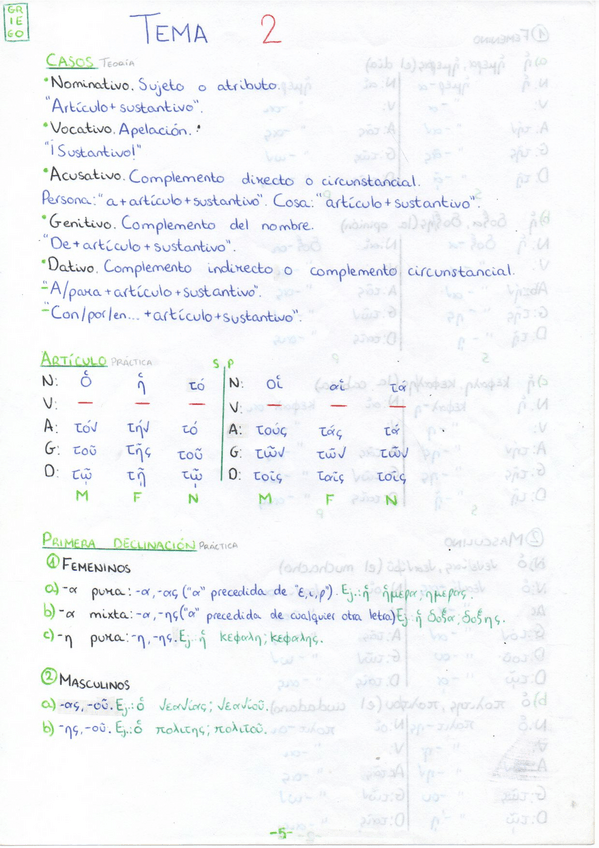 GR
IE
GO
TEMA 2
CASOS TEORÍA
•Nominativo. Sujeto o atributo.
"Artículo + sustantivo".
•Vocativo. Apelación.
"¡Sustantivo!"
•Acusativo. Complemento directo o circunstancial.
Persona: "a + artículo + sustantivo". Cosa: "artículo + sustantivo".
•Genitivo. Complemento del nombre.
"De + artículo + sustantivo".
•Dativo. Complemento indirecto o complemento circunstancial.
-"A/para + artículo + sustantivo".
-"Con/por/en... + artículo + sustantivo".
ARTÍCULO PRÁCTICA S P
N: ὁ ἡ τό N: οἱ αἱ τά
V: — — — V: — — —
A: τόν τήν τό A: τούς τάς τά
G: τοῦ τῆς τοῦ G: τῶν τῶν τῶν
D: τῷ τῇ τῷ D: τοῖς ταῖς τοῖς
M F N M F N
PRIMERA DECLINACIÓN PRÁCTICA
① FEMENINOS
a) -α pura: -α, -ας ("α" precedida de "ε, ι, ρ"). Ej.: ἡ ἡμερα; ημερας.
b) -α mixta: -α, -ης ("α" precedida de cualquier otra letra) Ej: ἡ δοξα; δοξης.
c) -η pura: -η, -ης. Ej: ἡ κεφαλη; κεφαλης.
② MASCULINOS
a) -ας, -οῦ. Ej.: ὁ νεανίας; νεανίοῦ.
b) -ης, -οῦ. Ej.: ὁ πολιτης; πολιτοῦ.
-5-